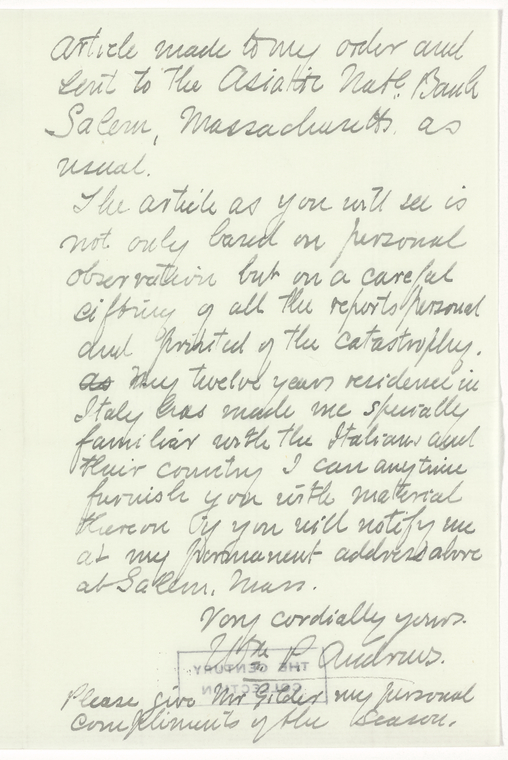 Article made to my order and
sent to the Asiatic Natl. Bank
Salem, Massachusetts. as
usual.
The article as you will see is
not only based on personal
observation but on a careful
cifting of all the reports personal
and printed of the catastrophy.
as My twelve years residence in
Italy has made me specially
familiar with the Italians and
their country I can anytime
furnish you with material
thereon if you will notify me
at my permanent address above
at Salem, Mass.
Very cordially yours.
Wm P. Andrews.
THE CENTURY
COLLECTION
Please give Mr Gilder my personal
compliments of the Season.